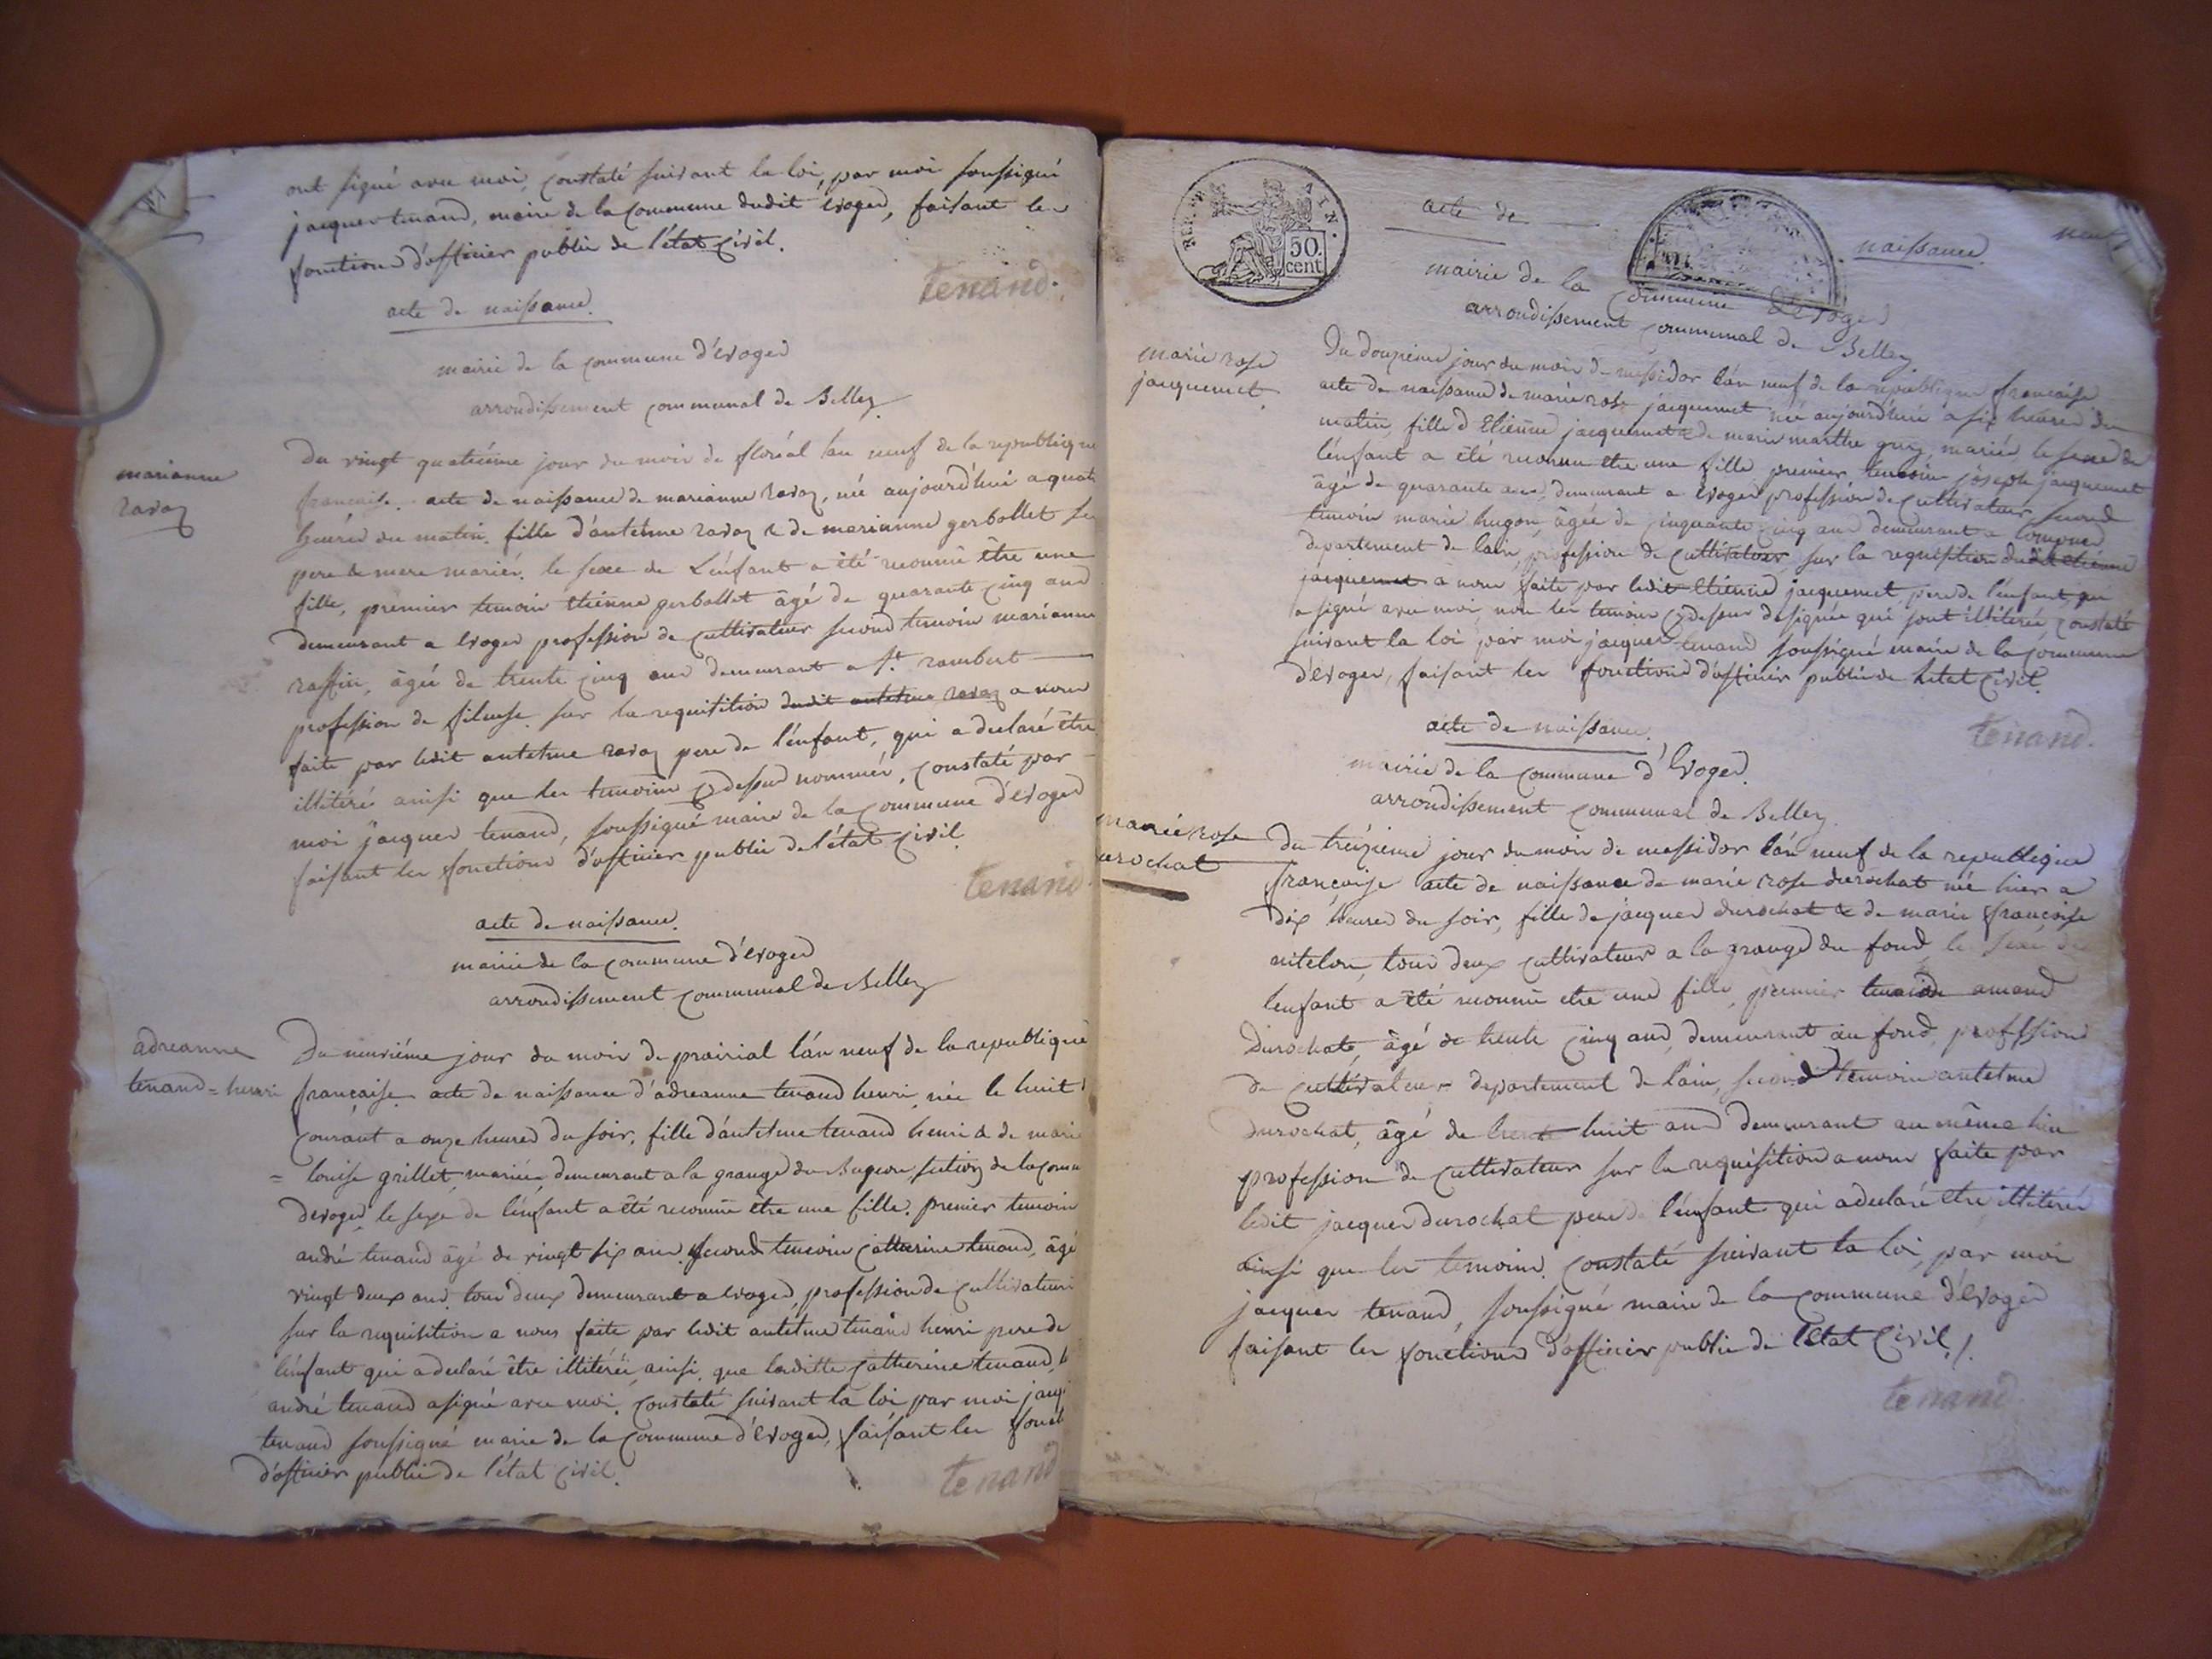 ont signé avec moi, constaté suivant la loi, par moi soussigné
jacques tenand, maire de la commune dudit Evoges, faisant les
fonctions d'officier public de l'état civil.
tenand.
acte de naissance.
mairie de la commune d'évoges
arrondissement communal de Belley
marianne
ravoz
Du vingt quatrième jour du mois de floréal l'an neuf de la republique
francaise. acte de naissance de marianne ravoz, née aujourd'hui a quat
heures du matin. fille d'antelme ravoz & de marianne gerbollet ses
pere & mere mariés. le sexe de L'énfant a été reconnu être une
fille, premier temoin etienne gerbollet âgé de quarante cinq ans
demeurant a evoges profession de cultivateur second temoin marianne
raffin, âgée de trente cinq ans demeurant a St. rambert
profession de fileuse. sur la requisition dudit antelme ravoz a nous
faite par ledit antelme ravoz pere de l'énfant, qui a declaré être
illitéré ainsi que les temoins cy dessus nommés, constaté par
moi jacques tenand, soussigné maire de la commune d'évoges
faisant les fonctions d'officier public de l'état civil.
tenand
acte de naissance.
mairie de la commune d'évoges
arrondissement communal de Belley
adreanne
tenand = henri
Du neuvième jour du mois de prairial l'an neuf de la republique
française. acte de naissance d'adreanne tenand henri, née le huit
courant a onze heures du soir, fille d'antelme tenand henri & de marie
= louise grillet, mariés, demeurant a la grange du Bugeon, section de la comm
d'evoges, le sexe de l'énfant a été reconnu être une fille. premier temoin
andré tenand âgé de vingt six ans. second temoin Catherine tenand, âgé
vingt deux ans. tous deux demeurant a evoges, profession de cultivateurs
sur la requisition a nous faite par ledit antelme tenand henri pere de
l'énfant qui a declaré être illitéré, ainsi, que laditte Catherine tenand,
andré tenand a signé avec moi. constaté suivant la loi par moi jacq
tenand soussigné maire de la commune d'évoges, faisant les fonct
d'officier public de l'état civil.
tenand
AIN.
50.
cent
acte de
naissance
neuf
mairie de la commune d'Evoges
arrondissement communal de Belley
marie rose
jacquemet
Du douzieme jour du mois de messidor l'an neuf de la republique française
acte de naissance de marie rose jacquemet née aujourd'hui a six heures du
matin, fille d'Etienne jacquemet & de marie marthe guy, mariés le sexe de
l'énfant a été reconnu etre une fille premier temoin joseph jacquemet
âgé de quarante ans, demeurant a evoges profession de cultivateur second
temoin marie hugon, âgée de cinquante cinq ans demeurant a
departement de lain, profession de cultivateur sur la requisition dudit etienne
jacquemet a nous faite par ledit etienne jacquemet, pere de l'énfant, qui
a signé avec moi, non les temoins cy dessus designés qui sont illitérés, constaté
suivant la loi par moi jacques tenand soussigné maire de la commune
d'évoges, faisant les fonctions d'officier public de l'etat civil.
tenand.
acte de naissance.
mairie de la commune d'Evoges.
arrondissement communal de Belley.
marie rose
durochat
Du treizieme jour du mois de messidor l'an neuf de la republique
française acte de naissance de marie rose durochat née hier a
dix heures du soir, fille de jacques durochat & de marie françoise
vitelon, tous deux cultivateurs a la grange du fond le sexe de
lenfant a été reconnu etre une fille, premier temoin amand
Durochat, âgé de trente cinq ans, demeurant au fond, profession
de cultivateur departement de l'ain, second temoin antelme
durochat, âgé de trente huit ans demeurant au même lieu
profession de cultivateur sur la requisition a nous faite par
ledit jacques durochat pere de l'énfant qui a declaré etre illitéré
ainsi que les temoins. constaté suivant la loi, par moi
jacques tenand, soussigné maire de la commune d'évoges
faisant les fonctions d'officier public de l'état civil./.
tenand